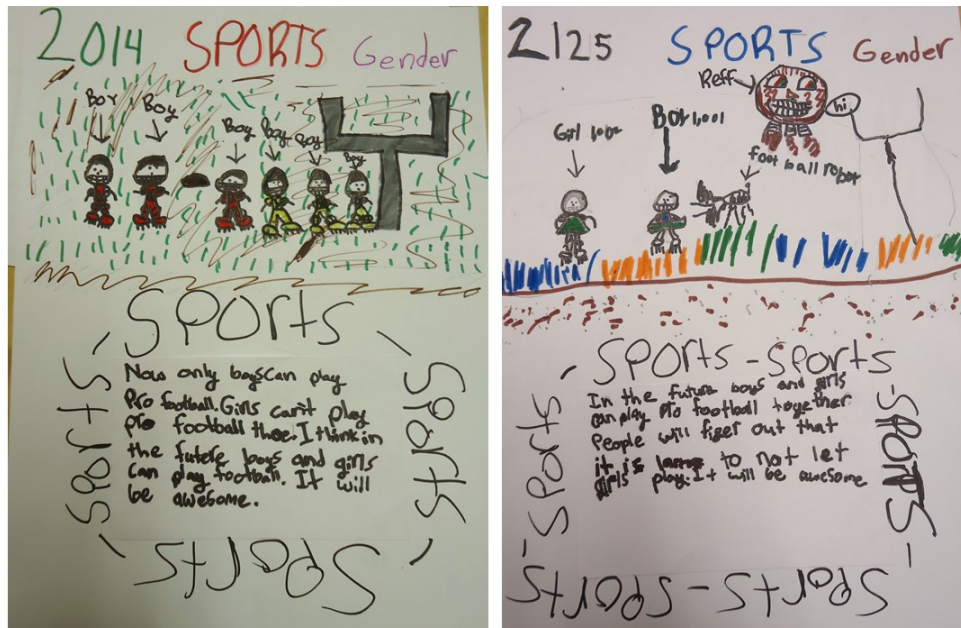 2014 SPORTS Gender
Boy
Boy
Boy
Boy
Boy
Boy
SPOrtS
Sports
Sports
Now only boys can play
Pro football. Girls can't play
pro football thoe. I think in
the future boys and girls
can play football. It will
be awesome.
SPOrtS
2125 SPORTS Gender
Reff
hi
Girl
Boy 1,001
foot ball robot
SPOrtS - SPOrtS
Sports
SPORTS
In the future boys and girls
can play Pro football together
People will figer out that
it is lame to not let
girls play. It will be awesome
SPOrtS - SPOrtS